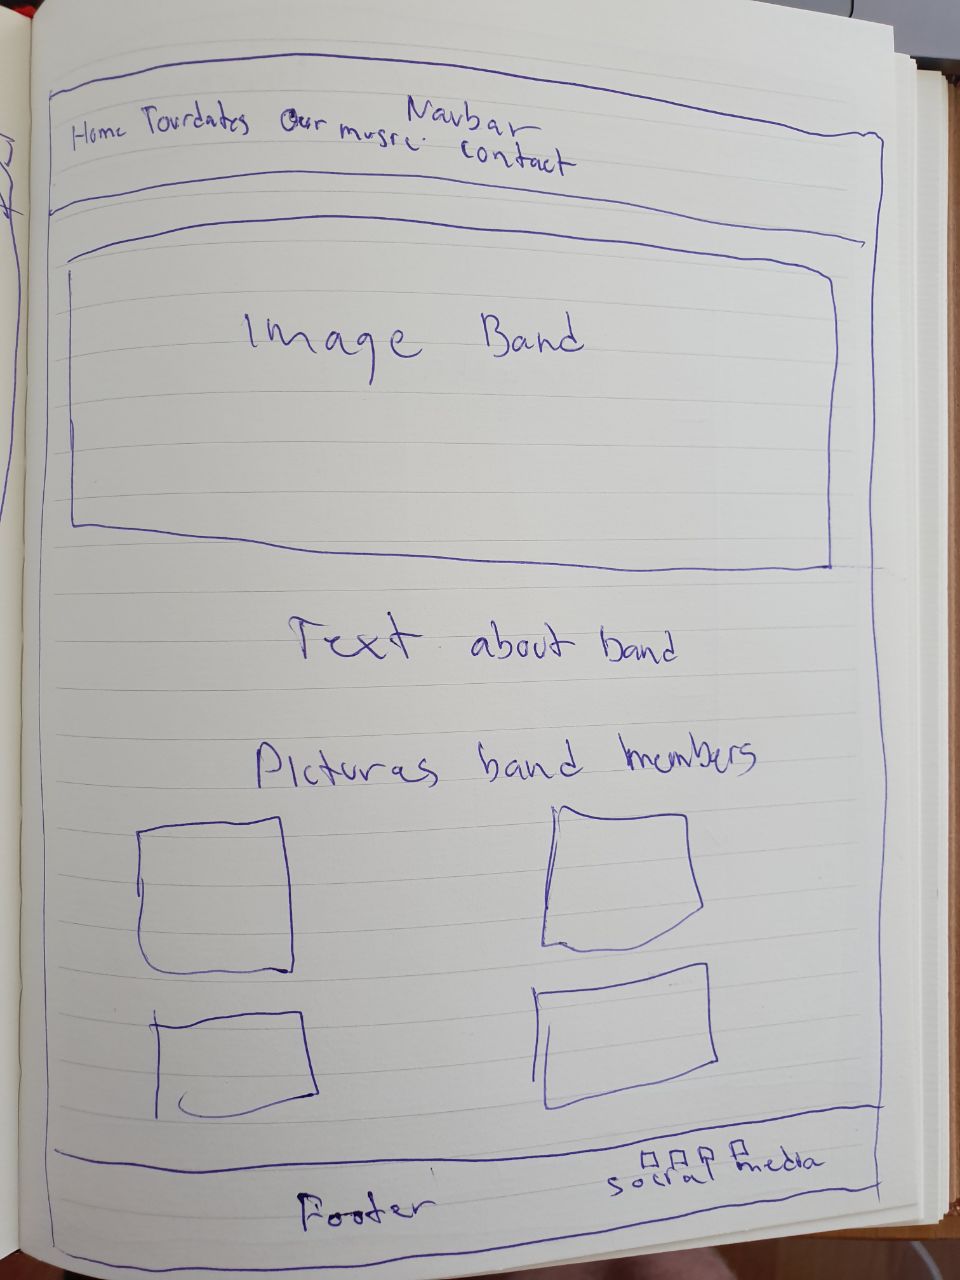 Navbar
Home Tourdates Our music contact
Image Band
Text about band
Pictures band members
Footer
social media